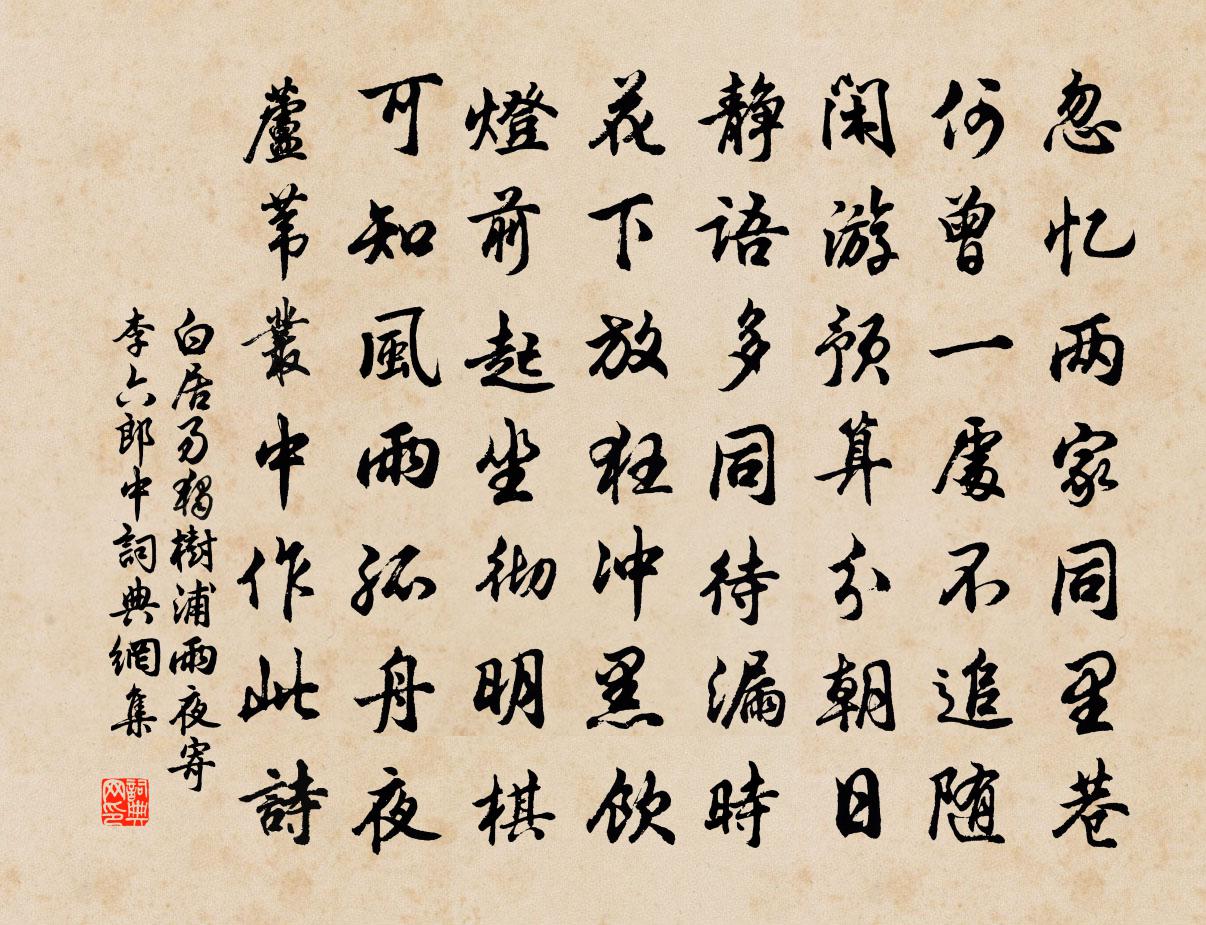 忽忆两家同里巷
何曾一處不追随
闲游预算分朝日
静语多同待漏時
花下放狂冲黑飲
燈前起坐彻明棋
可知風雨孤舟夜
蘆苇叢中作此詩
白居易獨樹浦雨夜寄
李六郎中詞典網集
詞典
网印